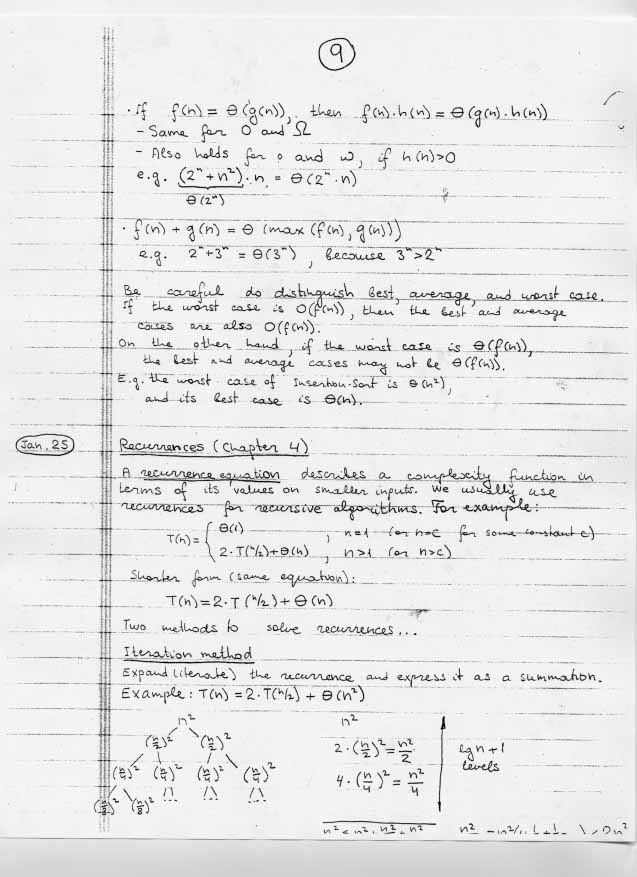 9
· If f(n) = Θ(g(n)), then f(n)·h(n) = Θ(g(n)·h(n))
- Same for O and Ω
- Also holds for o and ω, if h(n)>0
e.g. (2ⁿ + n²)·n = Θ(2ⁿ·n)
Θ(2ⁿ)
· f(n) + g(n) = Θ(max(f(n), g(n)))
e.g. 2ⁿ+3ⁿ = Θ(3ⁿ), because 3ⁿ>2ⁿ
Be careful do distinguish best, average, and worst case.
If the worst case is O(f(n)), then the best and average
cases are also O(f(n)).
On the other hand, if the worst case is Θ(f(n)),
the best and average cases may not be Θ(f(n)).
E.g. the worst case of Insertion-Sort is Θ(n²),
and its best case is Θ(n).
Jan. 25
Recurrences (Chapter 4)
A recurrence equation describes a complexity function in
terms of its values on smaller inputs. We usually use
recurrences for recursive algorithms. For example:
T(n) = { Θ(1) , n=1 (or n=c for some constant c)
2·T(n/2)+Θ(n) , n>1 (or n>c)
Shorter form (same equation):
T(n) = 2·T(n/2) + Θ(n)
Two methods to solve recurrences...
Iteration method
Expand (iterate) the recurrence and express it as a summation.
Example: T(n) = 2·T(n/2) + Θ(n²)
n² n²
(n/2)² (n/2)² 2·(n/2)² = n²/2 lg n + 1
(n/4)² (n/4)² (n/4)² (n/4)² 4·(n/4)² = n²/4 levels
(n/8)² (n/8)²